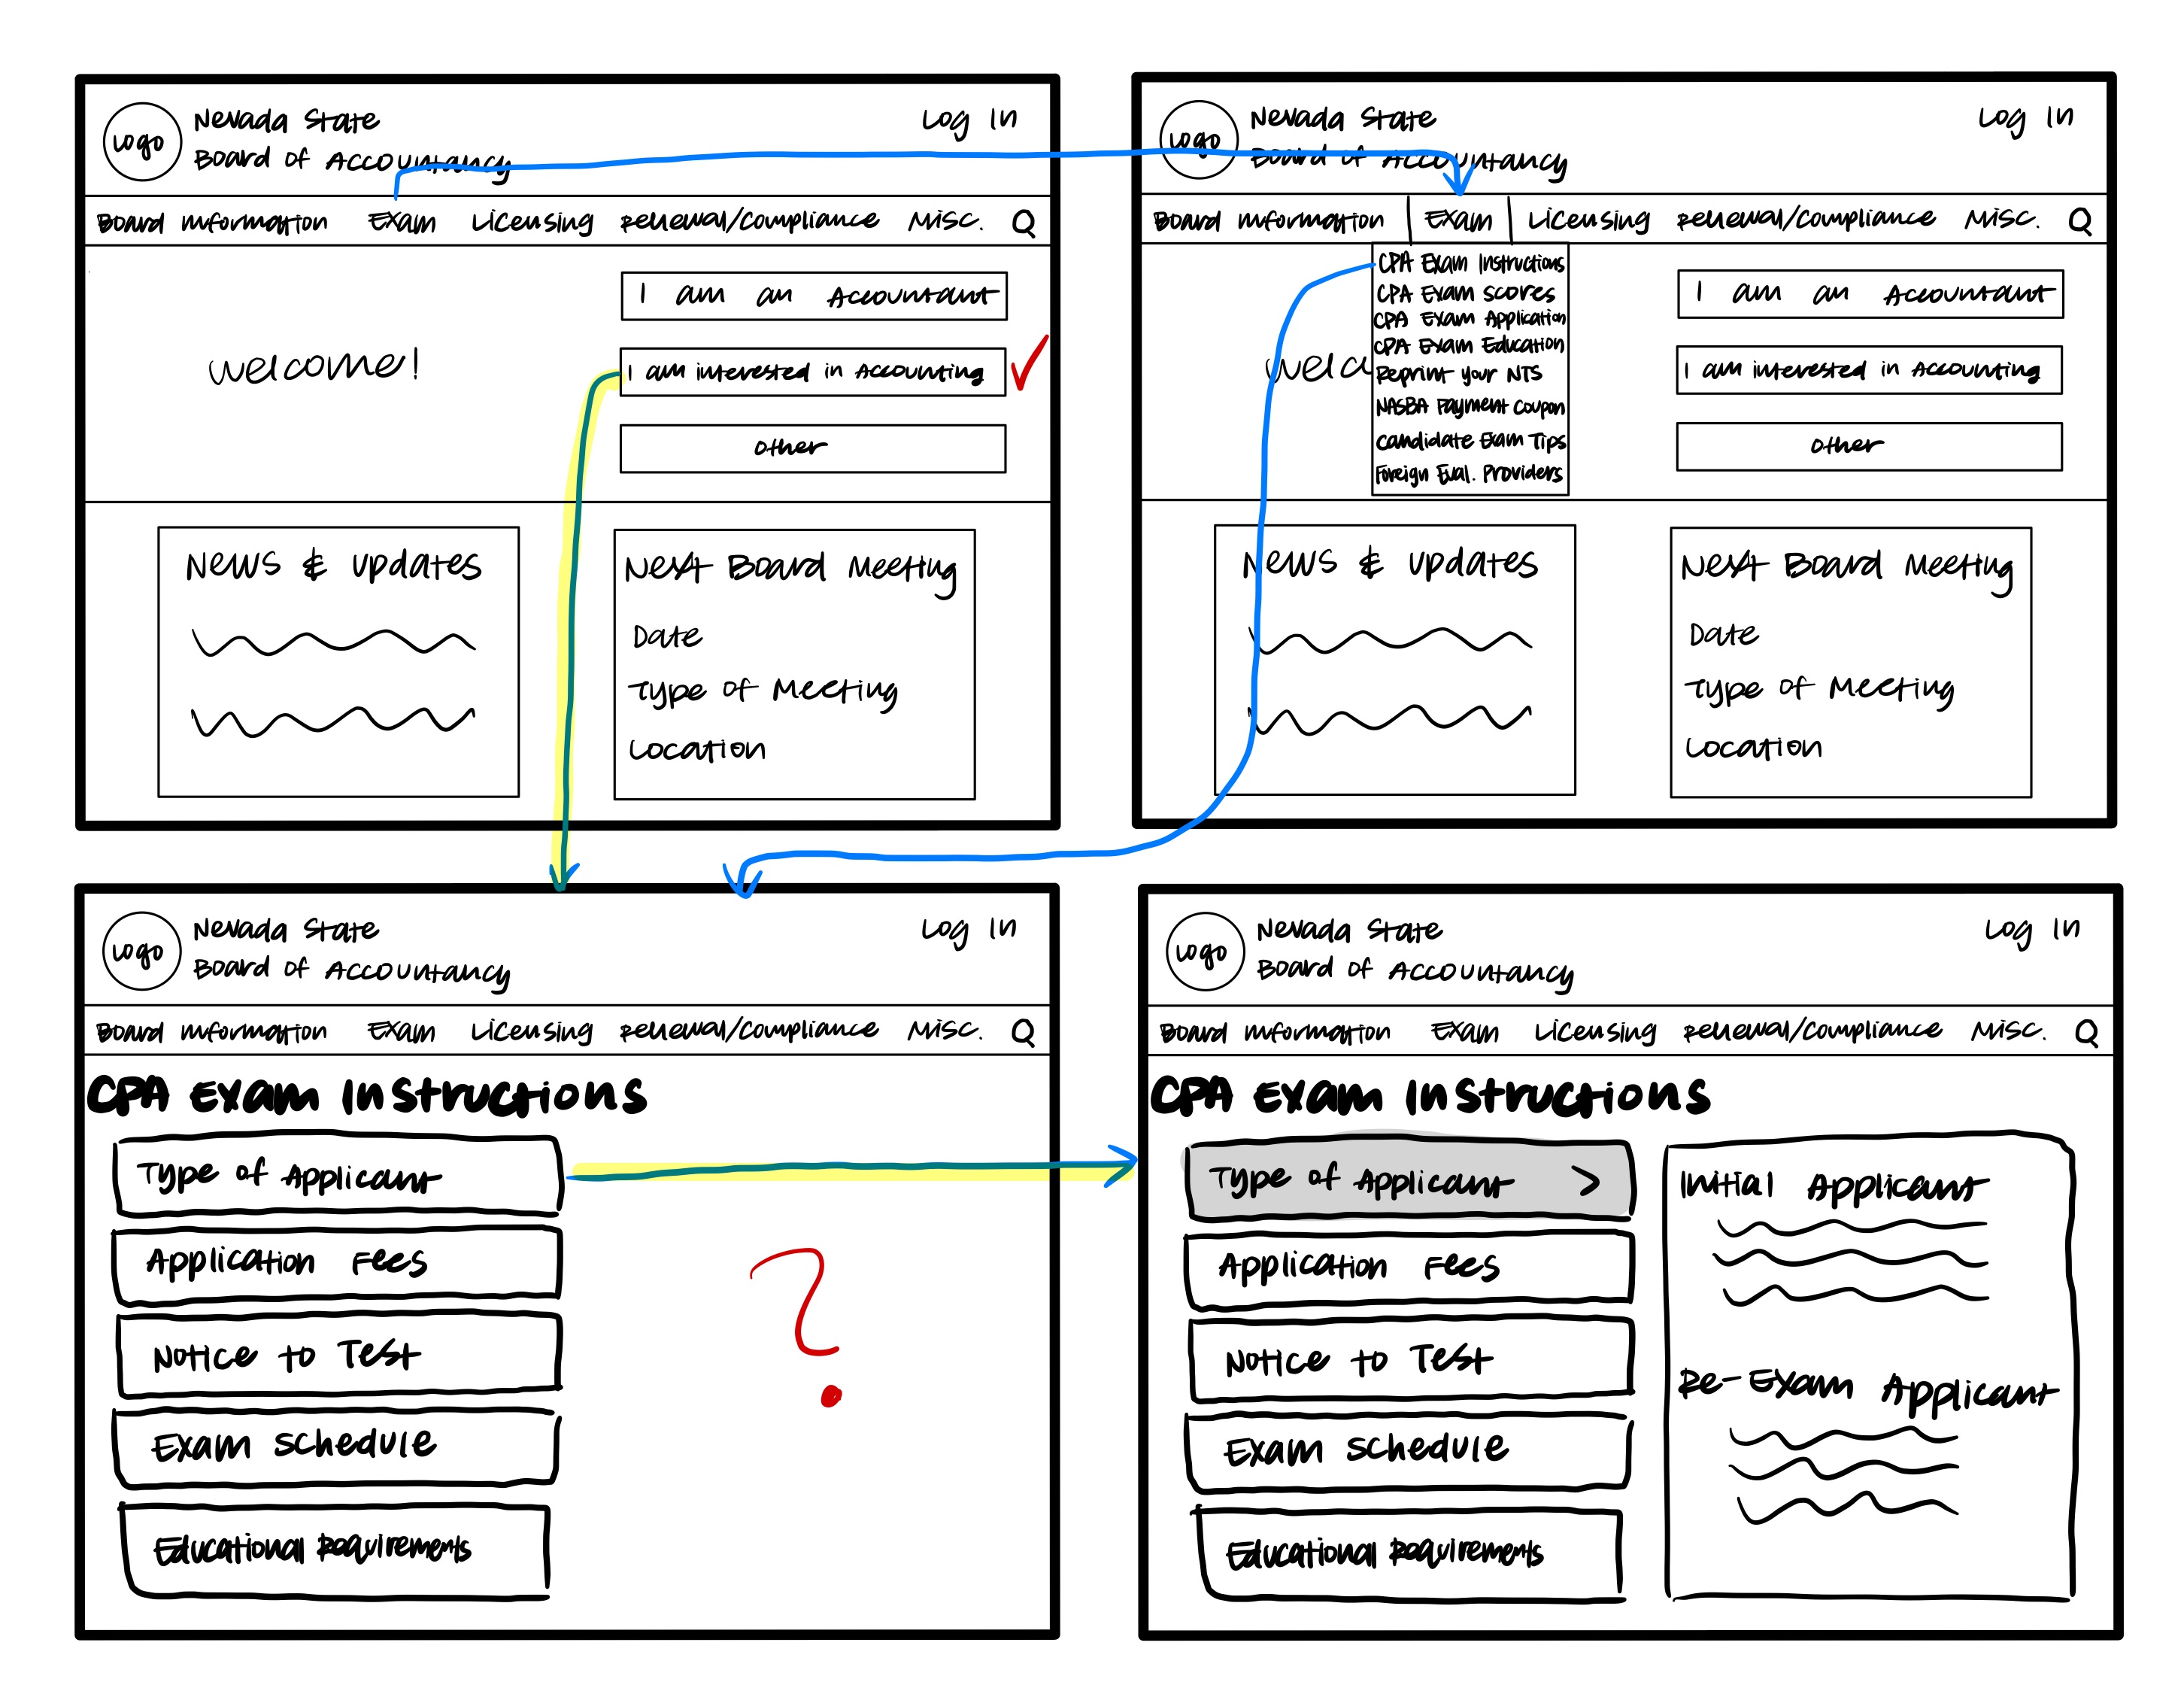 Logo
Nevada State
Board of Accountancy
Log In
Board Information Exam Licensing Renewal/Compliance Misc. Q
Welcome!
I am an Accountant
I am interested in Accounting
Other
News & Updates
Next Board Meeting
Date
Type of Meeting
Location
Logo
Nevada State
Board of Accountancy
Log In
Board Information Exam Licensing Renewal/Compliance Misc. Q
CPA Exam Instructions
CPA Exam Scores
CPA Exam Application
CPA Exam Education
Reprint Your NTS
NASBA Payment Coupon
Candidate Exam Tips
Foreign Eval. Providers
Welco
I am an Accountant
I am interested in Accounting
Other
News & Updates
Next Board Meeting
Date
Type of Meeting
Location
Logo
Nevada State
Board of Accountancy
Log In
Board Information Exam Licensing Renewal/Compliance Misc. Q
CPA Exam Instructions
Type of Applicant
Application Fees
Notice to Test
Exam Schedule
Educational Requirements
?
Logo
Nevada State
Board of Accountancy
Log In
Board Information Exam Licensing Renewal/Compliance Misc. Q
CPA Exam Instructions
Type of Applicant >
Application Fees
Notice to Test
Exam Schedule
Educational Requirements
Initial Applicant
Re-Exam Applicant